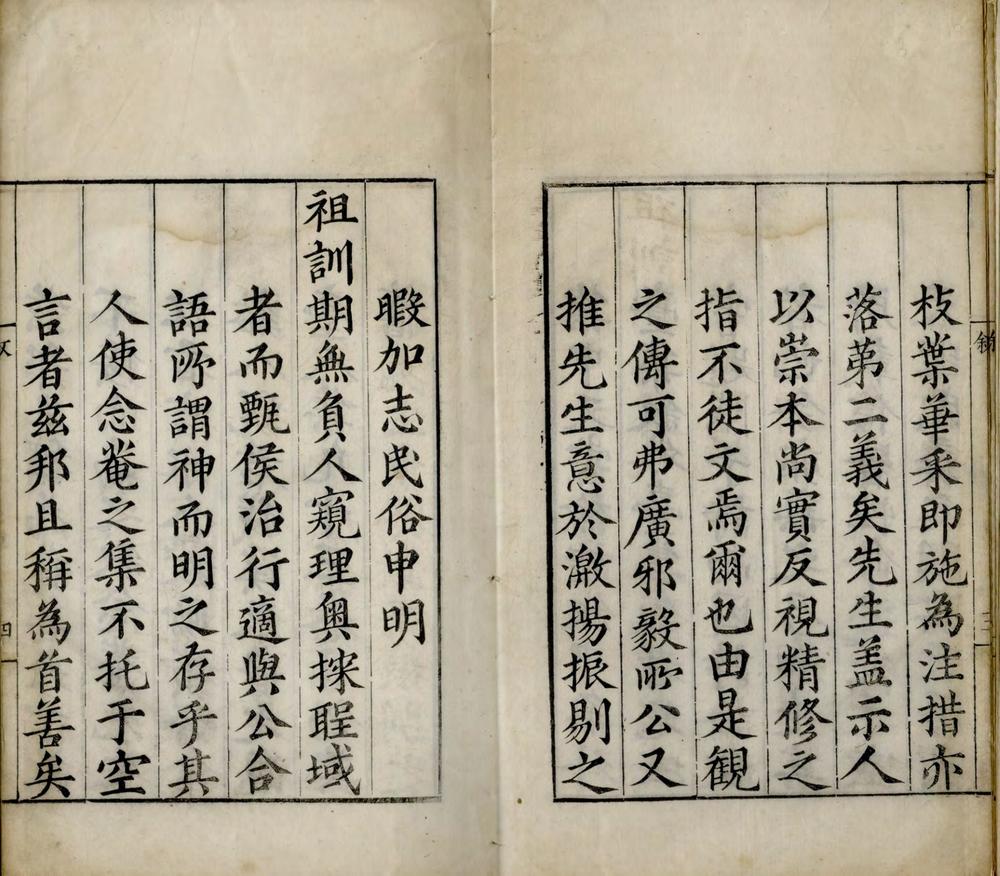 枝葉華采即施為注措亦
落苐二義矣先生盖示人
以崇本尚實反視精修之
指不徒文焉爾也由是觀
之傳可弗廣邪毅所公又
推先生意於激揚振剔之
暇加志民俗申明
祖訓期無負人窺理奥探聖域
者而甄侯治行適與公合
語所謂神而明之存乎其
人使念菴之集不托于空
言者兹邦且稱為首善矣
四